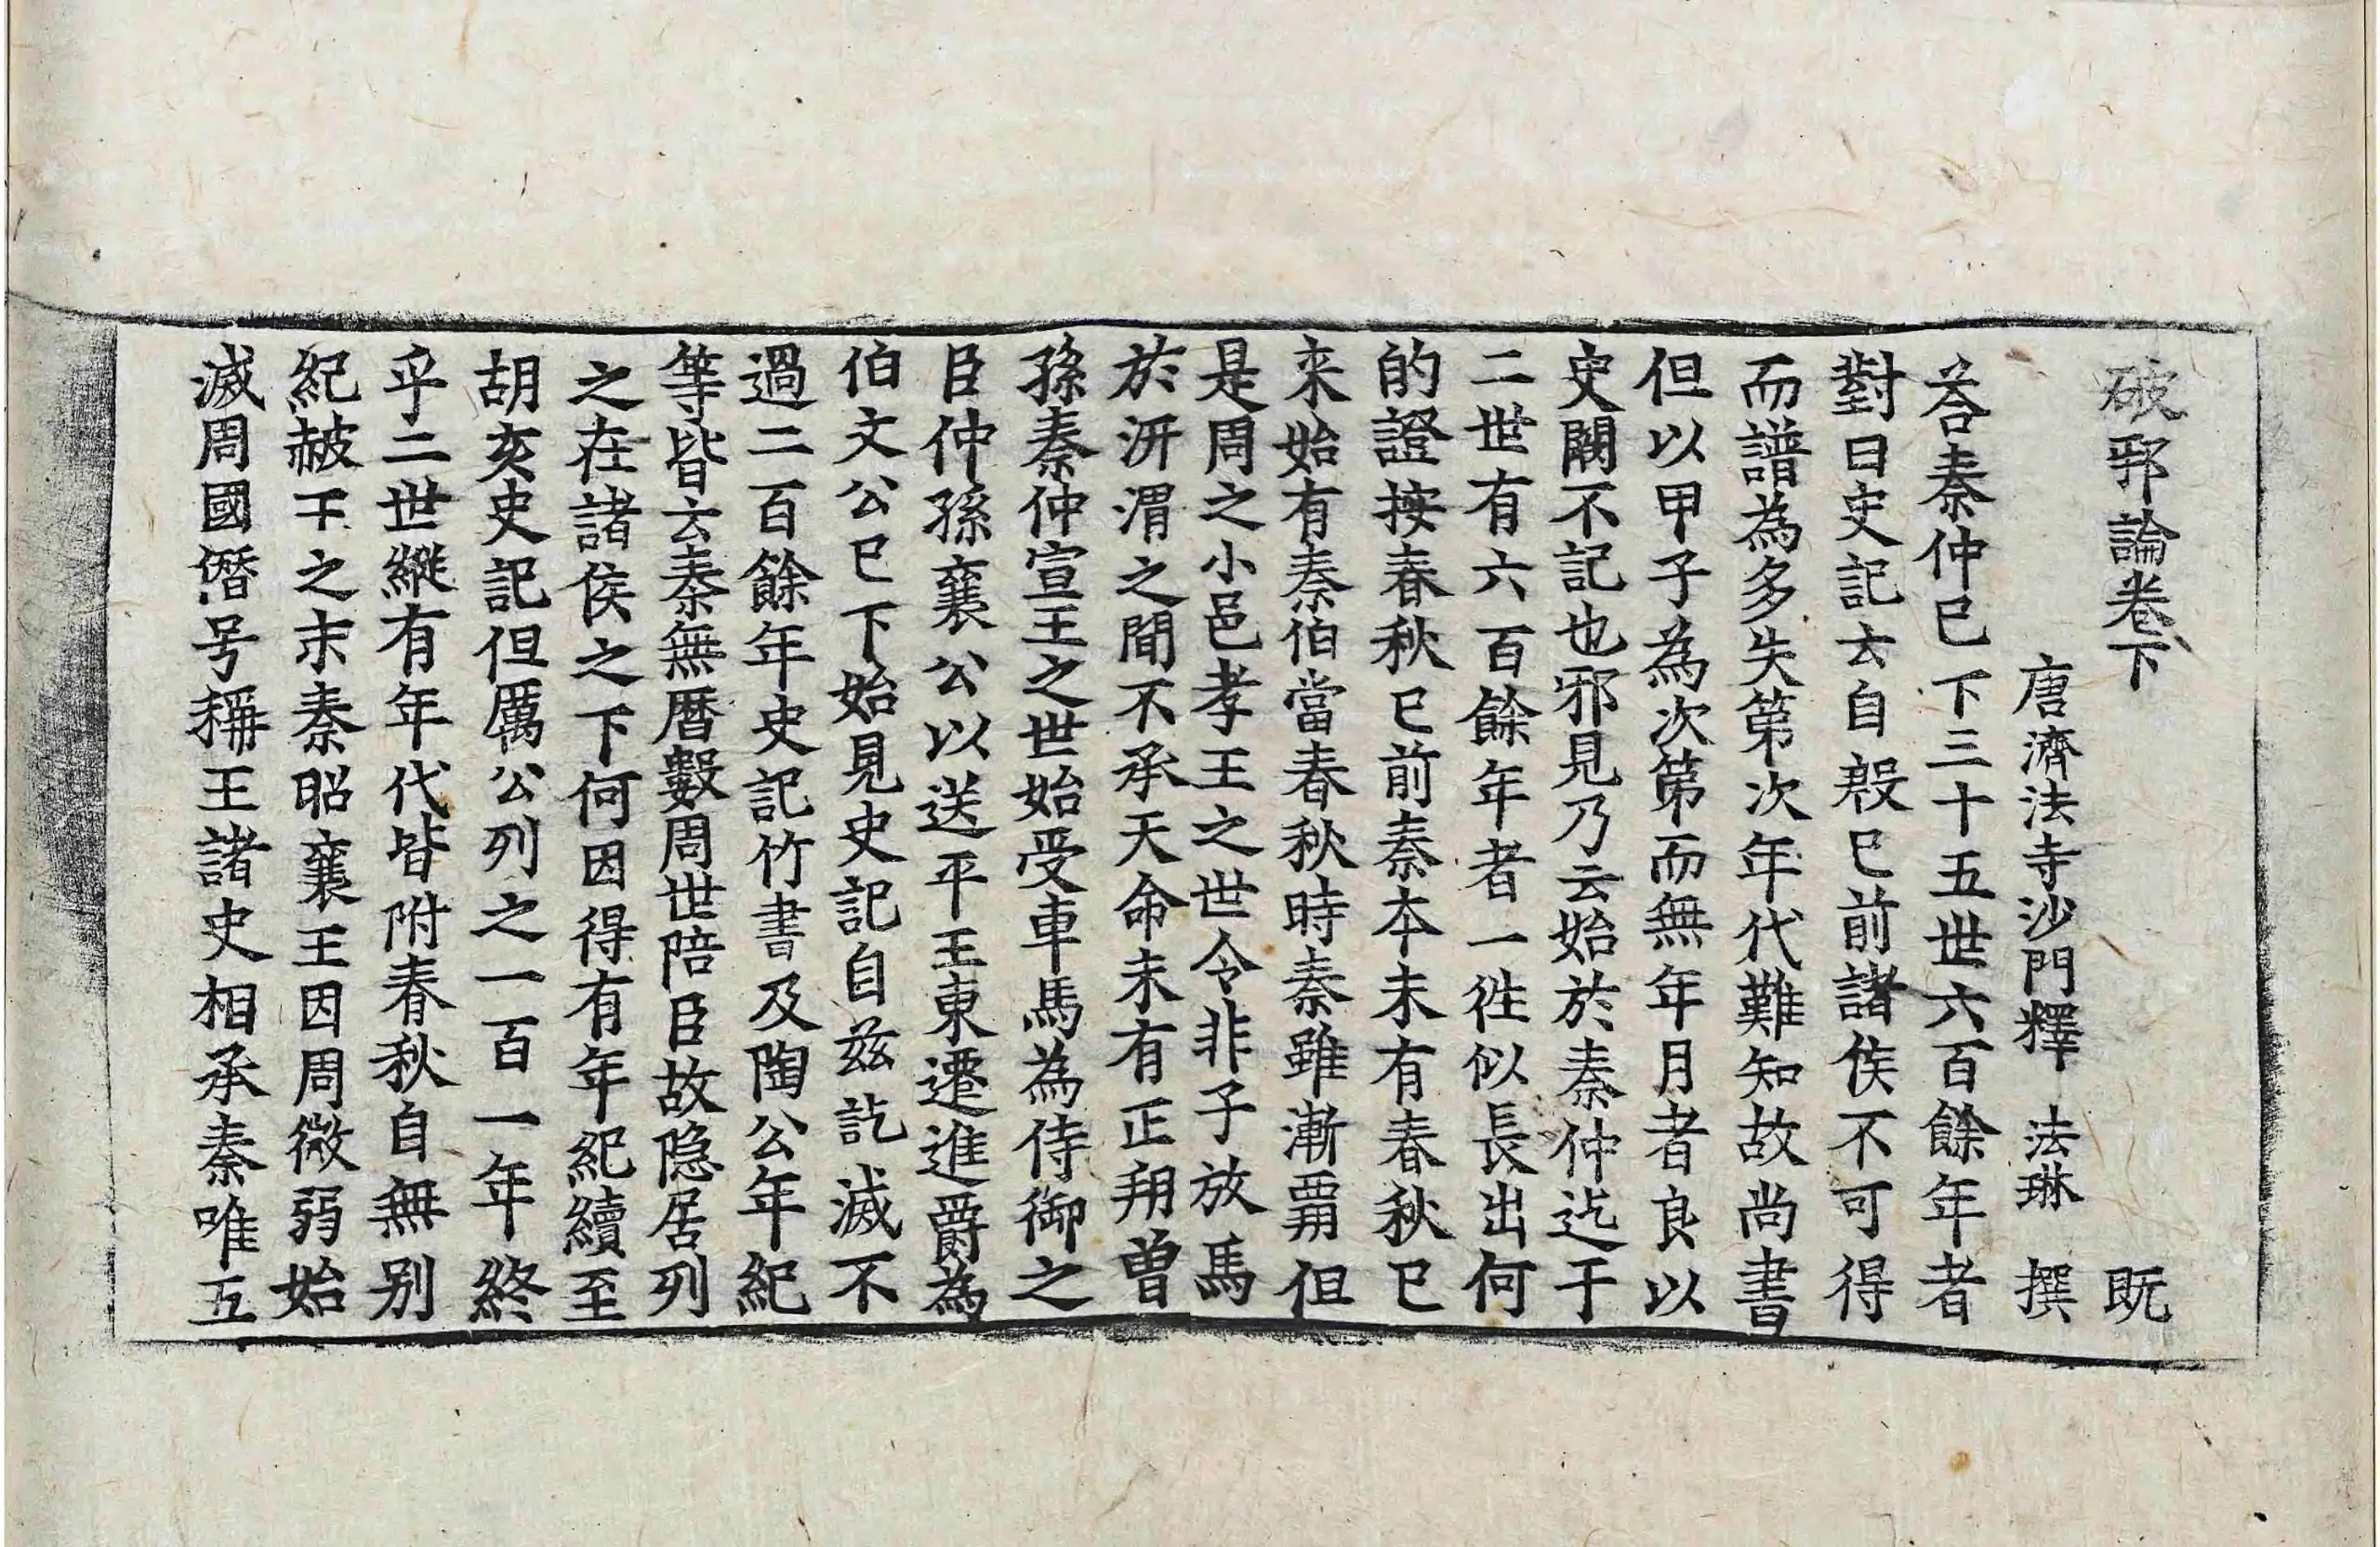 破邪論卷下 既
唐濟法寺沙門釋 法琳 撰
荅秦仲已下三十五世六百餘年者
對曰史記云自殷已前諸侯不可得
而譜為多失第次年代難知故尚書
但以甲子為次第而無年月者良以
史闕不記也邪見乃云始於秦仲迄于
二世有六百餘年者一徃似長出何
的證按春秋已前秦本未有春秋已
来始有秦伯當春秋時秦雖漸覇但
是周之小邑孝王之世令非子放馬
於汧渭之間不承天命未有正朔曽
孫秦仲宣王之世始受車馬為侍御之
臣仲孫襄公以送平王東遷進爵為
伯文公已下始見史記自兹訖滅不
過二百餘年史記竹書及陶公年紀
等皆云秦無曆數周世陪臣故隐居列
之在諸侯之下何因得有年紀續至
胡亥史記但厲公列之一百一年終
乎二世縱有年代皆附春秋自無别
紀赧王之末秦昭襄王因周微弱始
滅周國僭号稱王諸史相承秦唯五